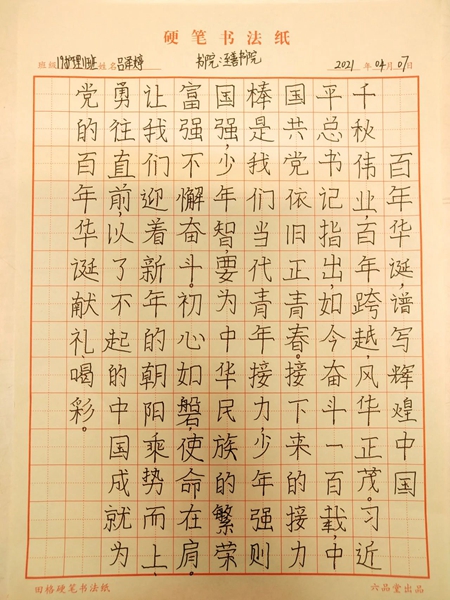 硬笔书法纸
班级19护理1班 姓名吕泽婷 书院:至善书院 2021年04月07日
百年华诞,谱写辉煌中国
千秋伟业,百年跨越,风华正茂。习近
平总书记指出,如今奋斗一百载,中
国共党依旧正青春。接下来的接力
棒是我们当代青年接力,少年强则
国强,少年智,要为中华民族的繁荣
富强不懈奋斗。初心如磐,使命在肩。
让我们迎着新年的朝阳乘势而上,
勇往直前,以了不起的中国成就为
党的百年华诞献礼,喝彩。
田格硬笔书法纸 六品堂出品